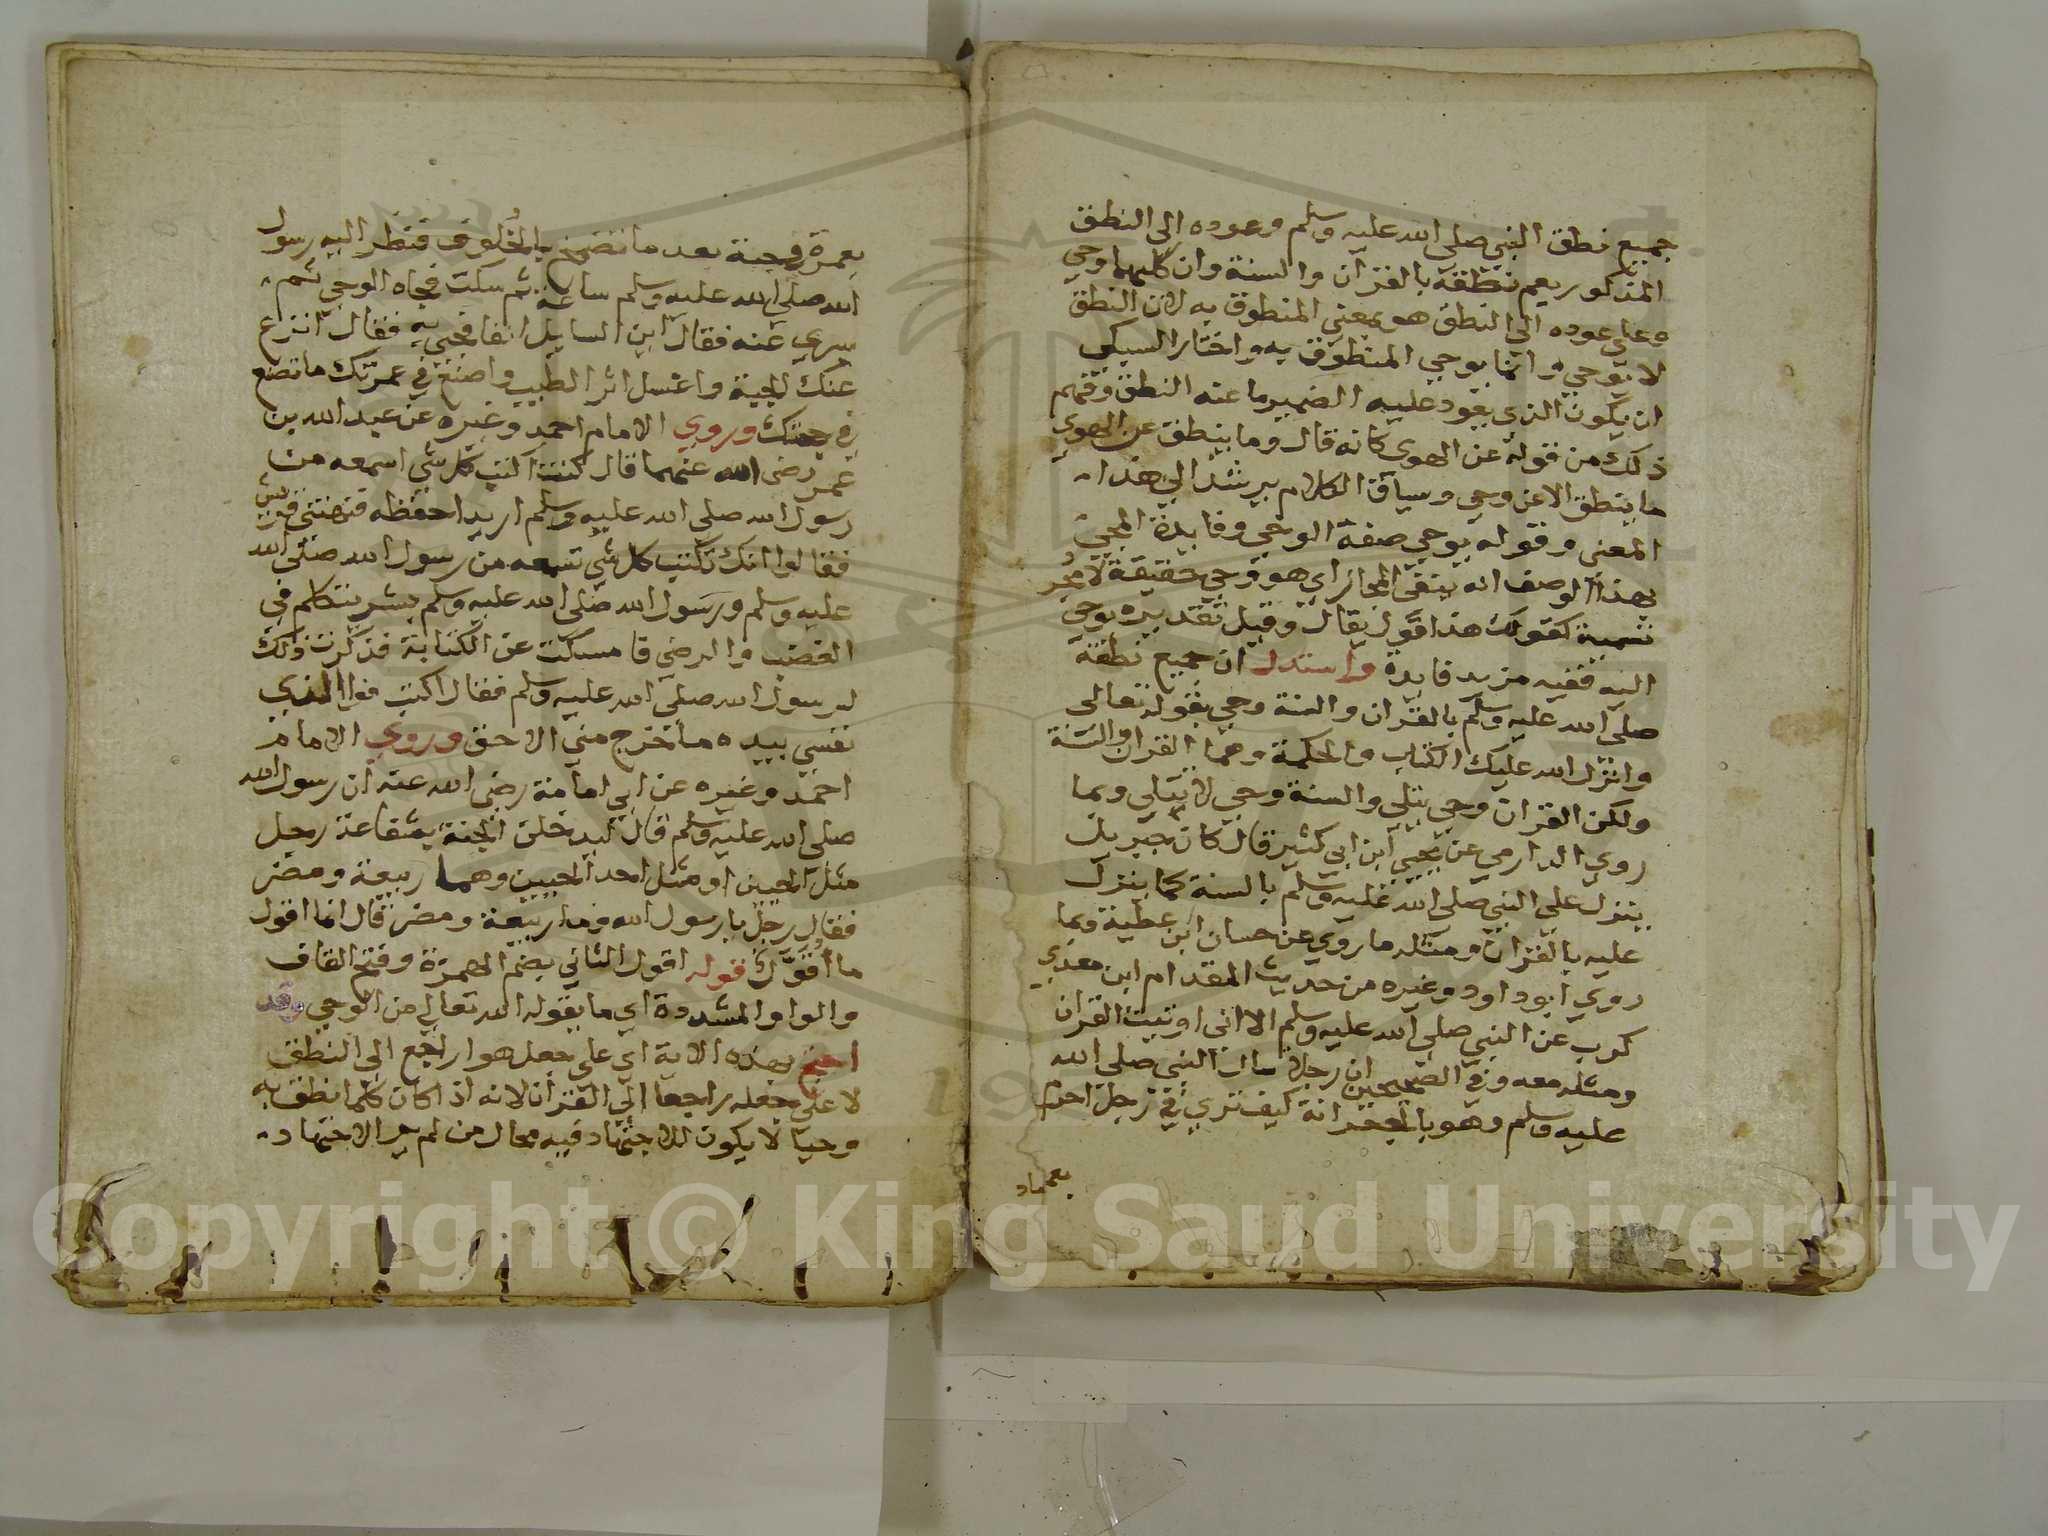 جميع نطق النبي صلى الله عليه وسلم وعوده الى النطق
المذكور يعم نطقه بالقران والسنة وان كليهما وحي
وعلى عوده الى النطق هو بمعنى المنطوق به لان النطق
لا يوحي وانما يوحي المنطوق به واختار السبكي
ان يكون الذي يعود عليه الضمير ما عنه النطق وفهم
ذلك من قوله عن الهوى كانه قال وما ينطق عن الهوى
ما ينطق الا عن وحي وسياق الكلام يرشد الى هذا
المعنى وقوله يوحي صفة الوحي وفايدة المجئ
بهذا الوصف انه ينفي المجاز اي هو وحي حقيقة لا مجرد
تسمية كقولك هذا قول يقال وقيل تقديره يوحي
اليه ففيه مزيد فايدة واستدل ان جميع نطقه
صلى الله عليه وسلم بالقران والسنة وحي بقوله تعالى
وانزل الله عليك الكتاب والحكمة وهما القران والسنة
ولكن القران وحي يتلى والسنة وحي لا يتلى وبما
روي الدارمي عن يحيى ابن ابي كثير قال كان جبريل
ينزل على النبي صلى الله عليه وسلم بالسنة كما ينزل
عليه بالقران ومثله ما روي عن حسان ابن عطية وبما
روي ابو داود وغيره من حديث المقدام ابن معدي
كرب عن النبي صلى الله عليه وسلم الا اني اوتيت القران
ومثله معه وفي الصحيحين ان رجلا سال النبي صلى الله
عليه وسلم وهو بالجعرانة كيف ترى في رجل احرم
بعمرة في جبة بعد ما تضمخ بالخلوق فنظر اليه رسول
الله صلى الله عليه وسلم ساعة ثم سكت فجاه الوحي ثم
سري عنه فقال اين السايل انفا فجئ به فقال انزع
عنك الجبة واغسل اثر الطيب واصنع في عمرتك ما تصنع
في حجتك وروي الامام احمد وغيره عن عبد الله بن
عمر رضي الله عنهما قال كنت اكتب كل شي اسمعه من
رسول الله صلى الله عليه وسلم اريد احفظه فنهتني قريش
فقالوا انك تكتب كل شي تسمعه من رسول الله صلى الله
عليه وسلم ورسول الله صلى الله عليه وسلم بشر يتكلم في
الغضب والرضي فامسكت عن الكتابة فذكرت ذلك
لرسول الله صلى الله عليه وسلم فقال اكتب فوالذي
نفسي بيده ما تخرج مني الا حق وروي الامام
احمد وغيره عن ابي امامة رضي الله عنه ان رسول الله
صلى الله عليه وسلم قال ليدخلن الجنة بشفاعة رجل
مثل الحيين او مثل احد الحيين وهما ربيعة ومضر
فقال رجل يا رسول الله وما ربيعة ومضر قال انما اقول
ما اُقَوَّل قوله اقول الثاني بضم الهمزة وفتح القاف
والواو المشددة اي ما يقوله الله تعالى من الوحي وقد
احتج بهذه الاية اي على جعل هو راجع الى النطق
لا على جعله راجعا الى القران لانه اذا كان كلما نطق به
وحيا لا يكون للاجتهاد فيه مجال من لم ير الاجتهاد
Copyright © King Saud University